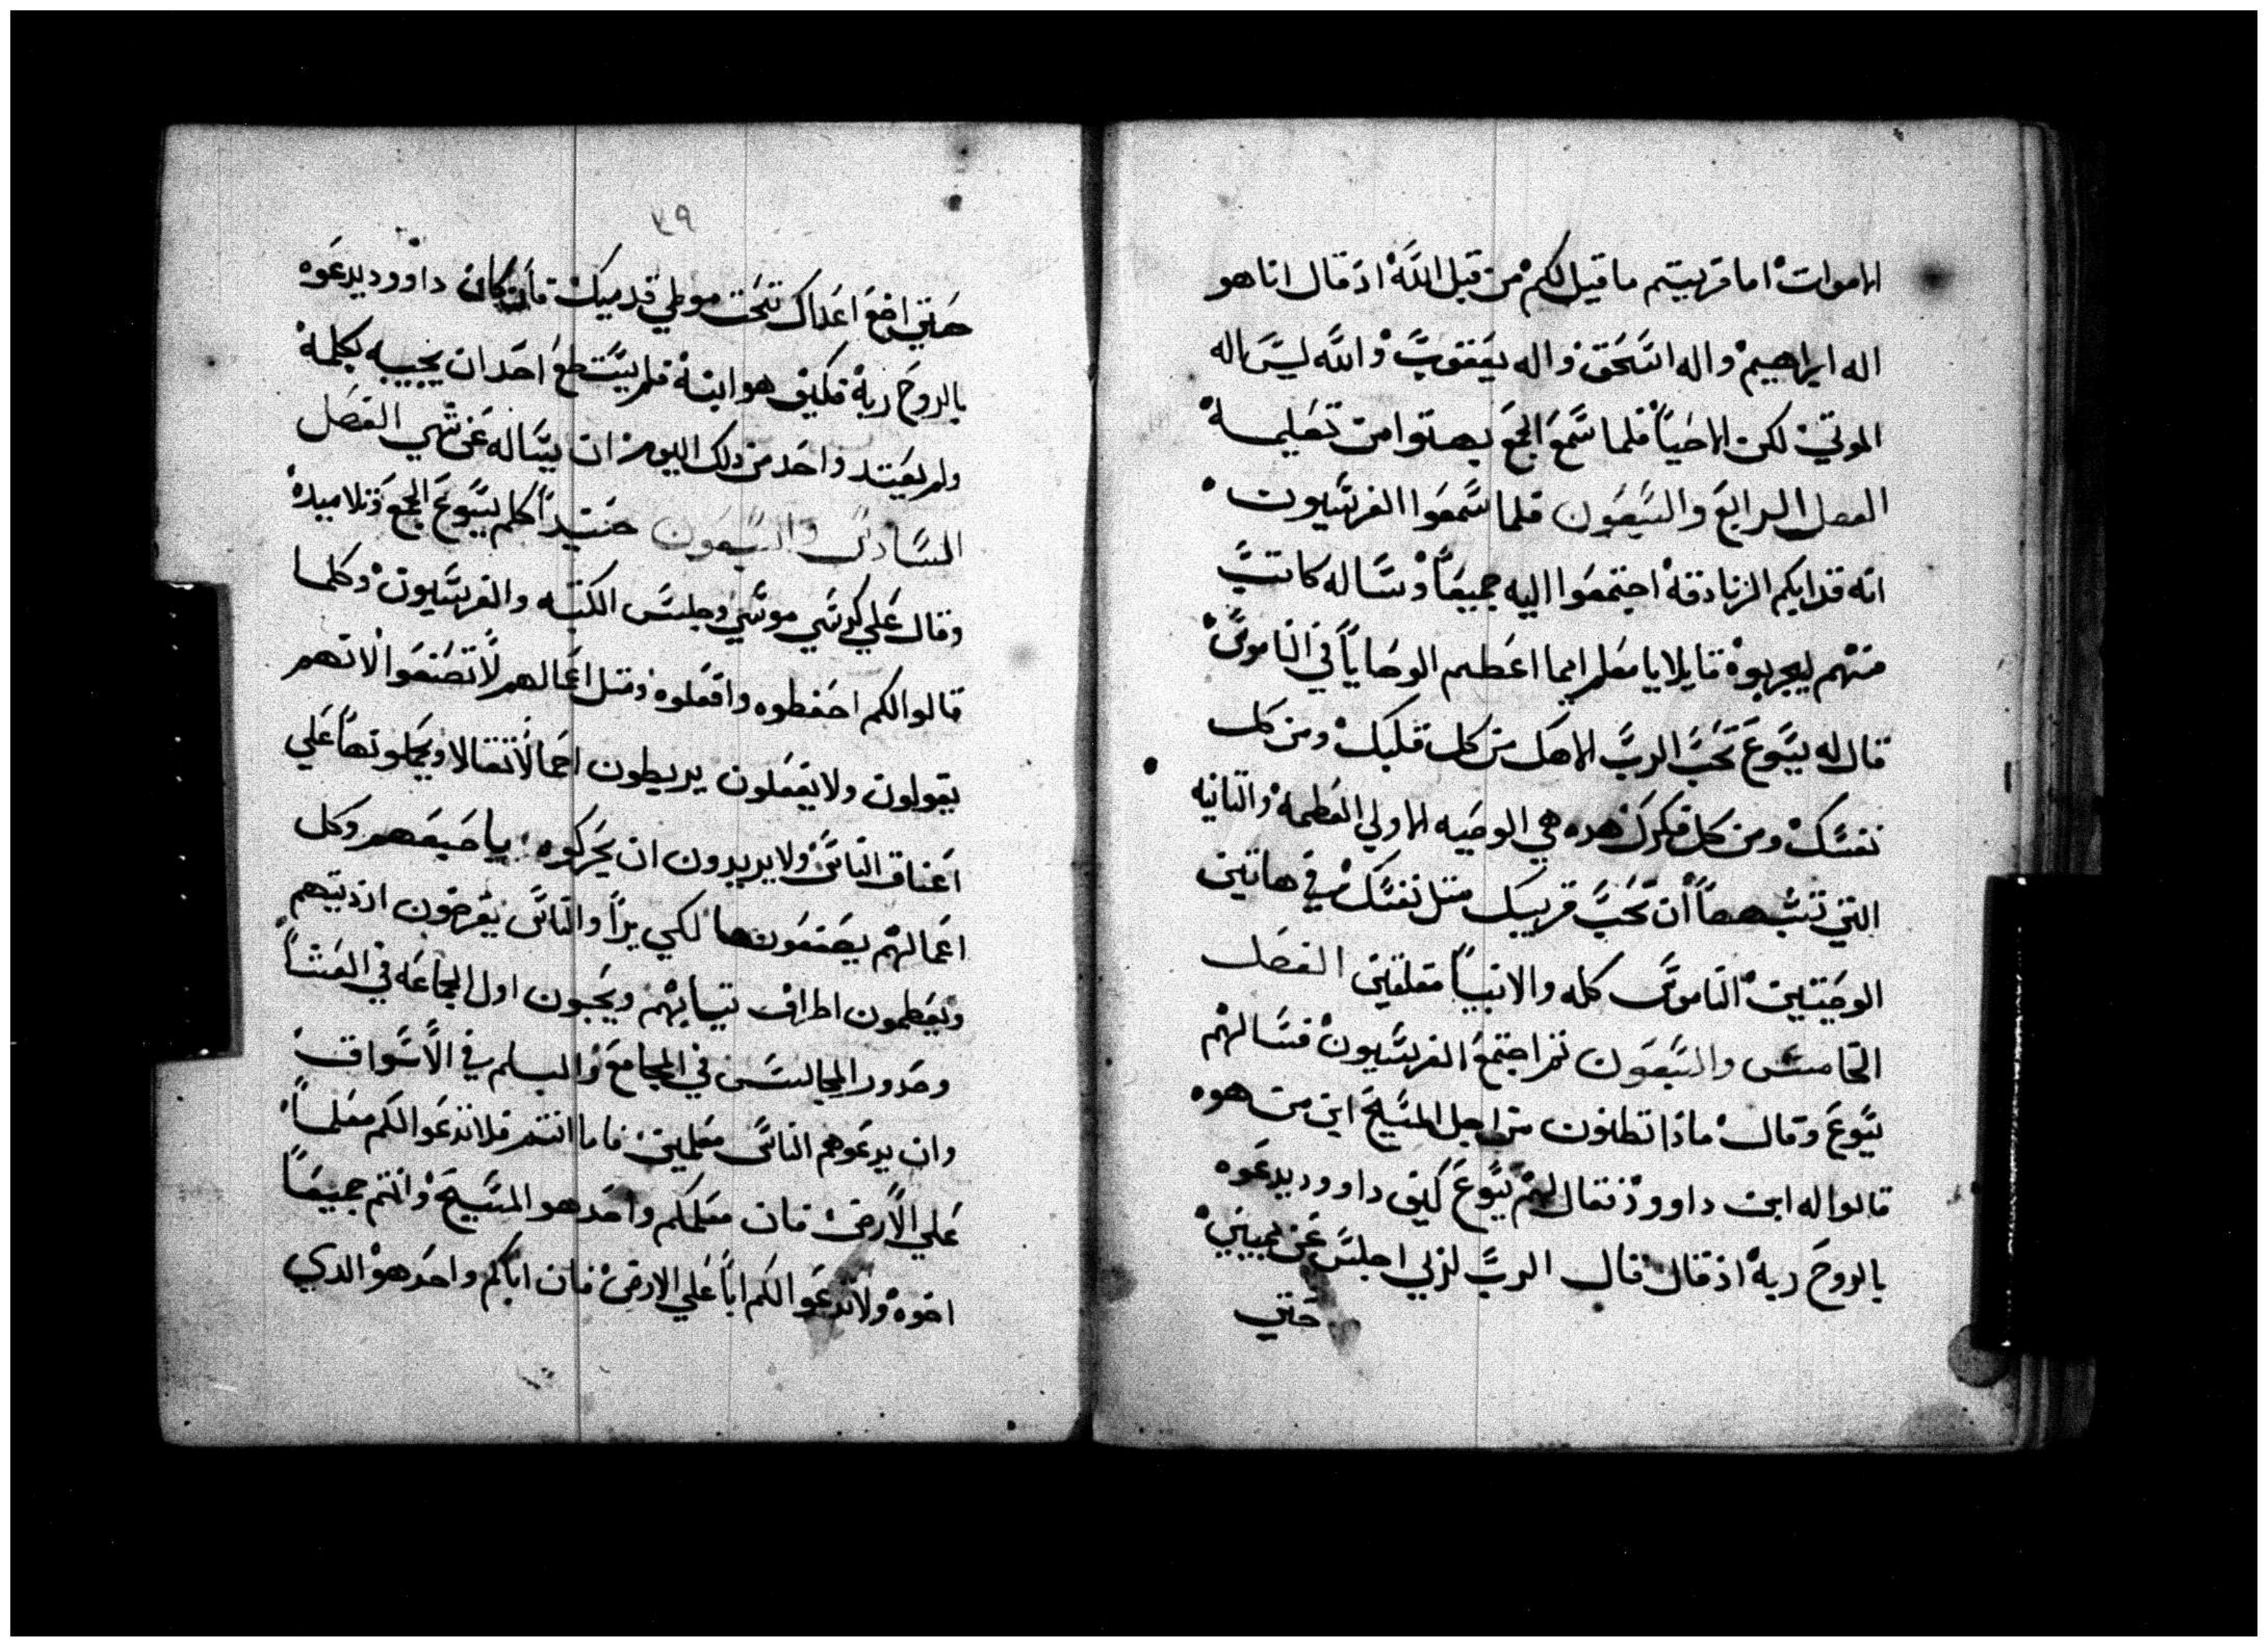 الاموات اما قريتم ما قيل لكم من قبل الله اذ قال انا هو
اله ابراهيم واله اسحق واله يعقوب والله ليس اله
الموتي لكن الاحيا فلما سمع الجمع بهتوا من تعليمه
الفصل الرابع والسبعون فلما سمعوا الفريسيون
انه قد ابكم الزنادقة اجتمعوا اليه جميعا وساله كاتب
منهم ليجربوه قايلا يا معلم ايما اعظم الوصايا في الناموس
قال له يسوع تحب الرب الاهك من كل قلبك ومن كل
نفسك ومن كل فكرك هده هي الوصيه الاولي العظمة والتانيه
التي تشبهها ان تحب قريبك متل نفسك في هاتين
الوصيتين الناموس كله والانبيا معلقين الفصل
الخامس والسبعون تم اجتمع الفريسيون فسالهم
يسوع وقال ماذا تظنون من اجل المسيح ابن من هوه
قالوا له ابن داوود فقال لهم يسوع كيف داوود يدعوه
بالروح ربه اذ قال قال الرب لربي اجلس عن يميني
حتي
٧٩
حتي اضع اعداك تحت موطي قدميك فان كان داوود يدعوه
بالروح ربه فكيف هو ابنه فلم يستطع احد ان يجيبه بكلمة
ولم يعتد واحد من دلك اليوم ان يساله عن شي الفصل
السادس والسبعون حنيدا كلم يسوع الجمع وتلاميده
وقال علي كرسي موسي جلس الكتبه والفريسيون وكلما
قالوا لكم احفظوه وافعلوه ومتل اعمالهم لا تصنعوا لانهم
يقولون ولا يفعلون يربطون احمالا تقالا ويحملونها علي
اعناق الناس ولا يريدون ان يحركوه باصبعهم وكل
اعمالهم يصنعونها لكي يرا والناس يعرضون ارديتهم
ويعظمون اطراف تيابهم ويحبون اول الجماعه في العشا
وصدور المجالس في المجامع والسلم في الاسواق
وان يدعوهم الناس معلمين فاما انتم فلا تدعوا لكم معلما
علي الارض فان معلمكم واحد هو المسيح وانتم جميعا
اخوه ولا تدعوا لكم ابا علي الارض فان اباكم واحد هو الدي